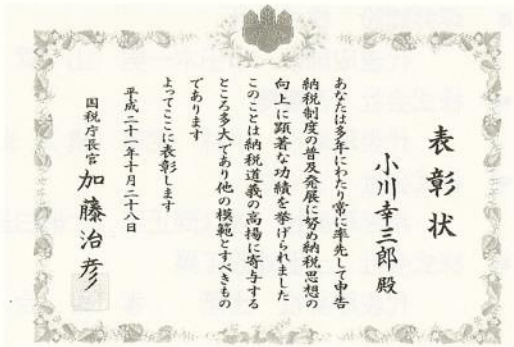 表彰状
小川幸三郎殿
あなたは多年にわたり常に率先して申告
納税制度の普及発展に努め納税思想の
向上に顕著な功績を挙げられました
このことは納税道義の高揚に寄与する
ところ多大であり他の模範とすべきもの
であります
よってここに表彰します
平成二十一年十月二十八日
国税庁長官 加藤治彦